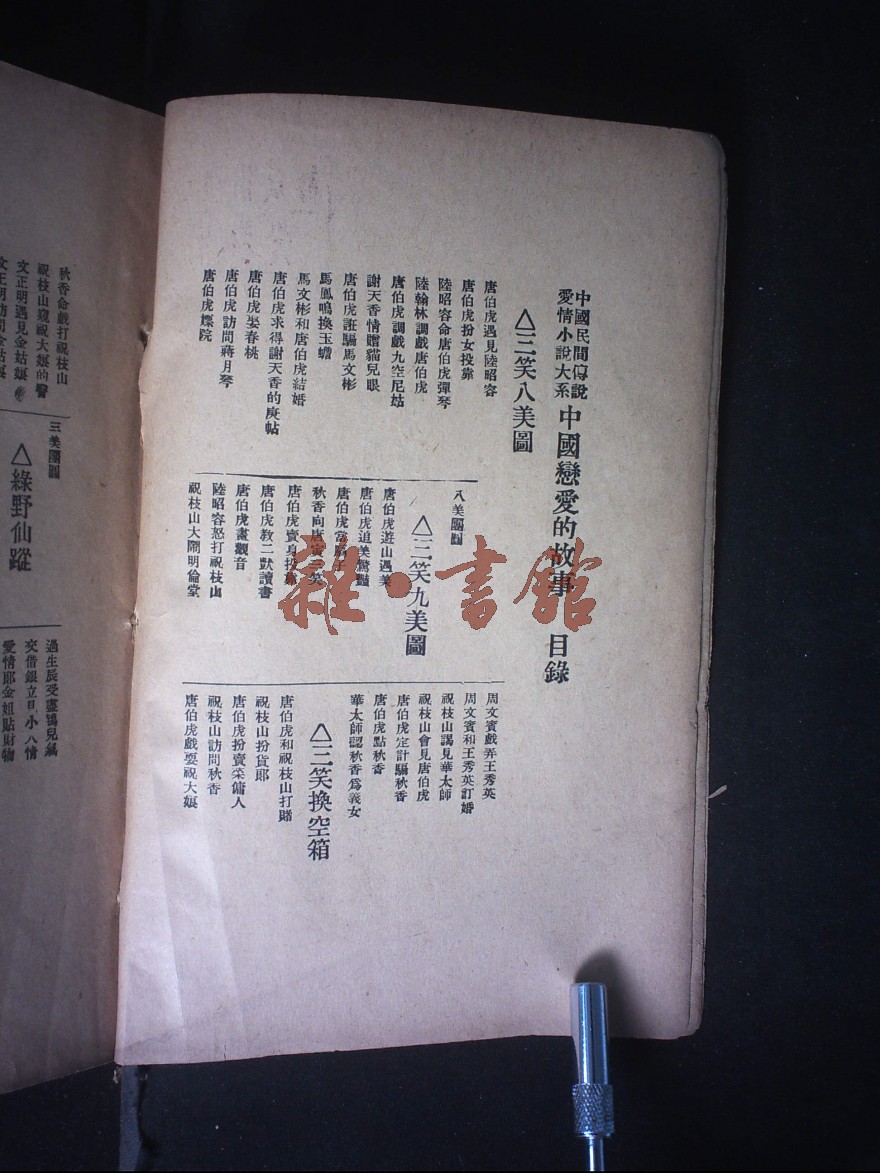 中國民間傳說
愛情小說大系
中國戀愛的故事 目錄
△三笑八美圖
唐伯虎遇見陸昭容
唐伯虎扮女投靠
陸昭容命唐伯虎彈琴
陸翰林調戲唐伯虎
唐伯虎調戲九空尼姑
謝天香情贈貓兒眼
唐伯虎誑騙馬文彬
馬鳳鳴換玉蟾
馬文彬和唐伯虎結婚
唐伯虎求得謝天香的庚帖
唐伯虎娶春桃
唐伯虎訪問蔣月琴
唐伯虎嫖院
八美團圓
△三笑九美圖
唐伯虎遊山遇美
唐伯虎追美驚豔
唐伯虎當扇子
秋香向唐寅三笑
唐伯虎賣身投靠
唐伯虎教二獃讀書
唐伯虎畫觀音
陸昭容怒打祝枝山
祝枝山大鬧明倫堂
周文賓戲弄王秀英
周文賓和王秀英訂婚
祝枝山謁見華太師
祝枝山會見唐伯虎
唐伯虎定計騙秋香
唐伯虎點秋香
華太師認秋香爲義女
△三笑換空箱
唐伯虎和祝枝山打賭
祝枝山扮貨郎
唐伯虎扮賣柴傭人
祝枝山訪問秋香
唐伯虎戲耍祝大娘
秋香命戲打祝枝山
祝枝山窺祝大娘的臀
文正明遇見金姑娘
文正明訪問金姑娘
三美團圓
△綠野仙蹤
過生辰受盡鴇兒氣
交借銀立旦小人情
愛情郎金姐貼財物
雜·書館